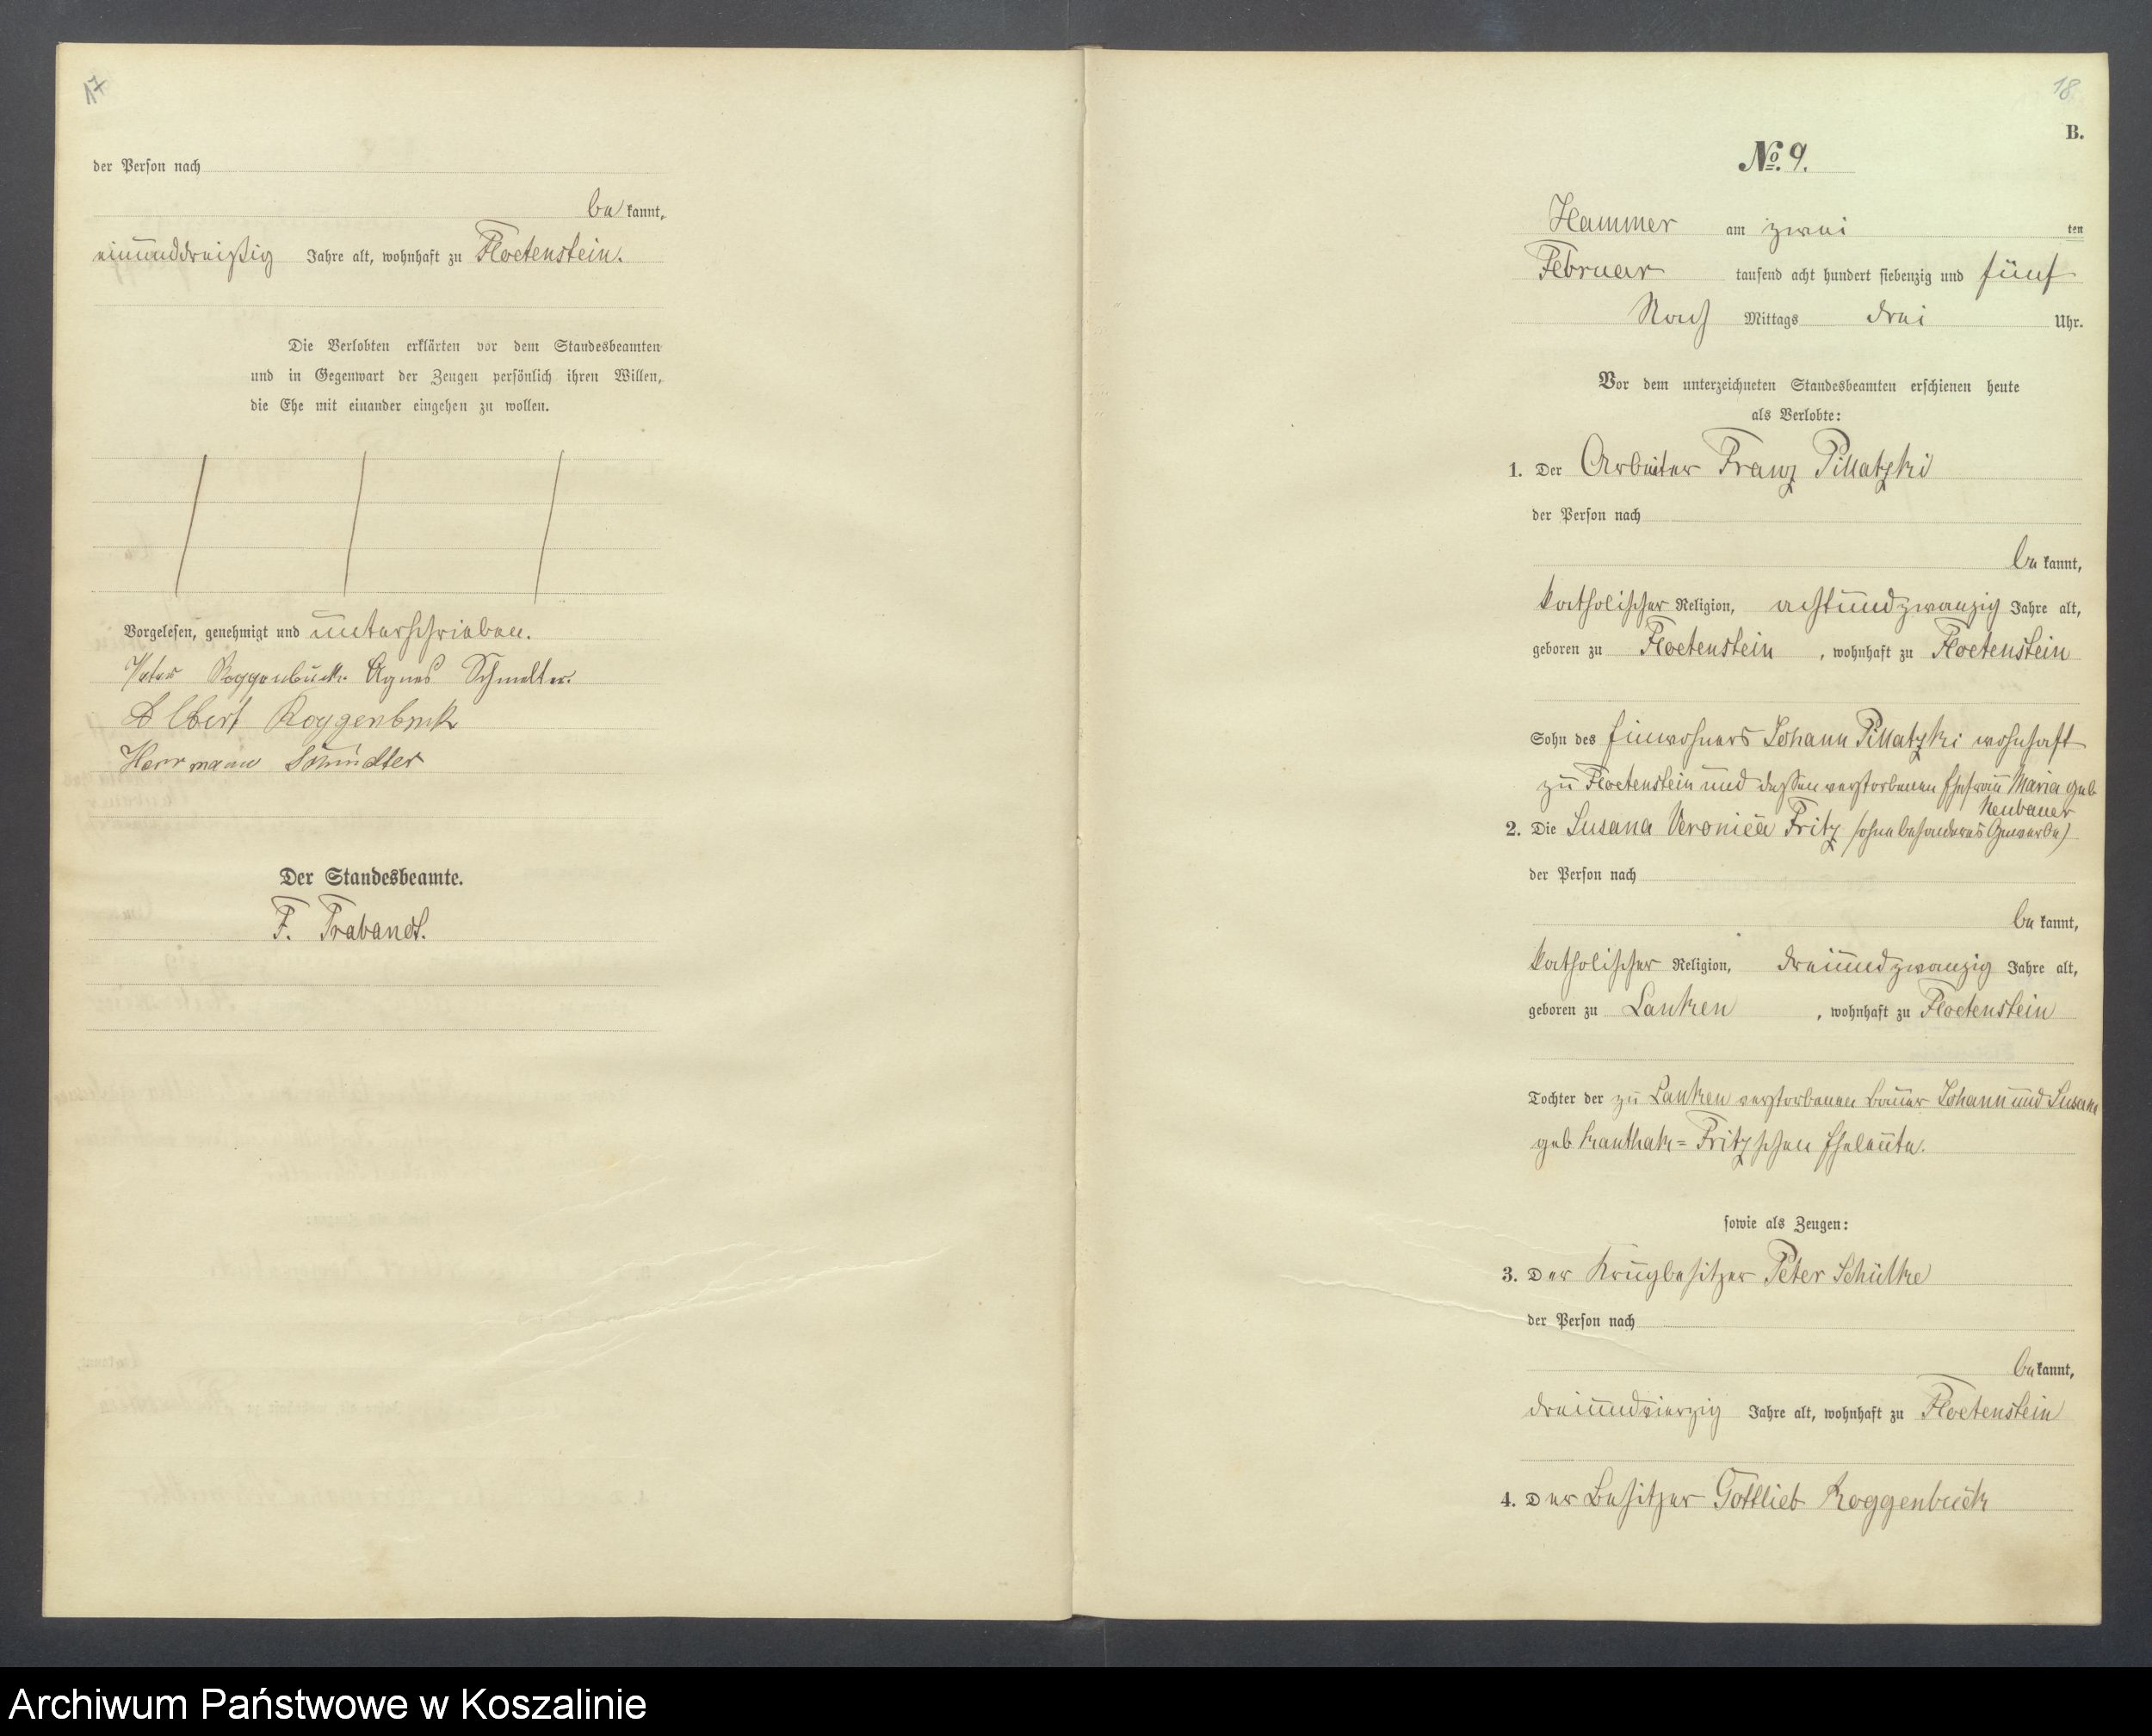 17
der Person nach
bekannt,
einunddreißig Jahre alt, wohnhaft zu Floetenstein.
Die Verlobten erklärten vor dem Standesbeamten
und in Gegenwart der Zeugen persönlich ihren Willen,
die Ehe mit einander eingehen zu wollen.
Vorgelesen, genehmigt und unterschrieben.
Peter Roggenbuck. Agnes Schmelter.
Albert Roggenbuk
Herrmann Schmelter
Der Standesbeamte.
F. Trabandt.
18
B.
No. 9.
Hammer am zwei ten
Februar tausend acht hundert siebenzig und fünf
Nach Mittags drei Uhr.
Vor dem unterzeichneten Standesbeamten erschienen heute
als Verlobte:
1. Der Arbeiter Franz Pillatzki
der Person nach
bekannt,
katholischer Religion, achtundzwanzig Jahre alt,
geboren zu Floetenstein, wohnhaft zu Floetenstein
Sohn des Einwohners Johann Pillatzki wohnhaft
zu Floetenstein und dessen verstorbenen Ehefrau Maria geb
Neubauer
2. Die Susana Veronica Fritz (ohne besonderes Gewerbe)
der Person nach
bekannt,
katholischer Religion, dreiundzwanzig Jahre alt,
geboren zu Lanken, wohnhaft zu Floetenstein
Tochter der zu Lanken verstorbenen Bauer Johann und Susana
geb Kanthak= Fritzschen Eheleute.
sowie als Zeugen:
3. Der Krugbesitzer Peter Schülke
der Person nach
bekannt,
dreiundvierzig Jahre alt, wohnhaft zu Floetenstein
4. Der Besitzer Gottlieb Roggenbuck
Archiwum Państwowe w Koszalinie